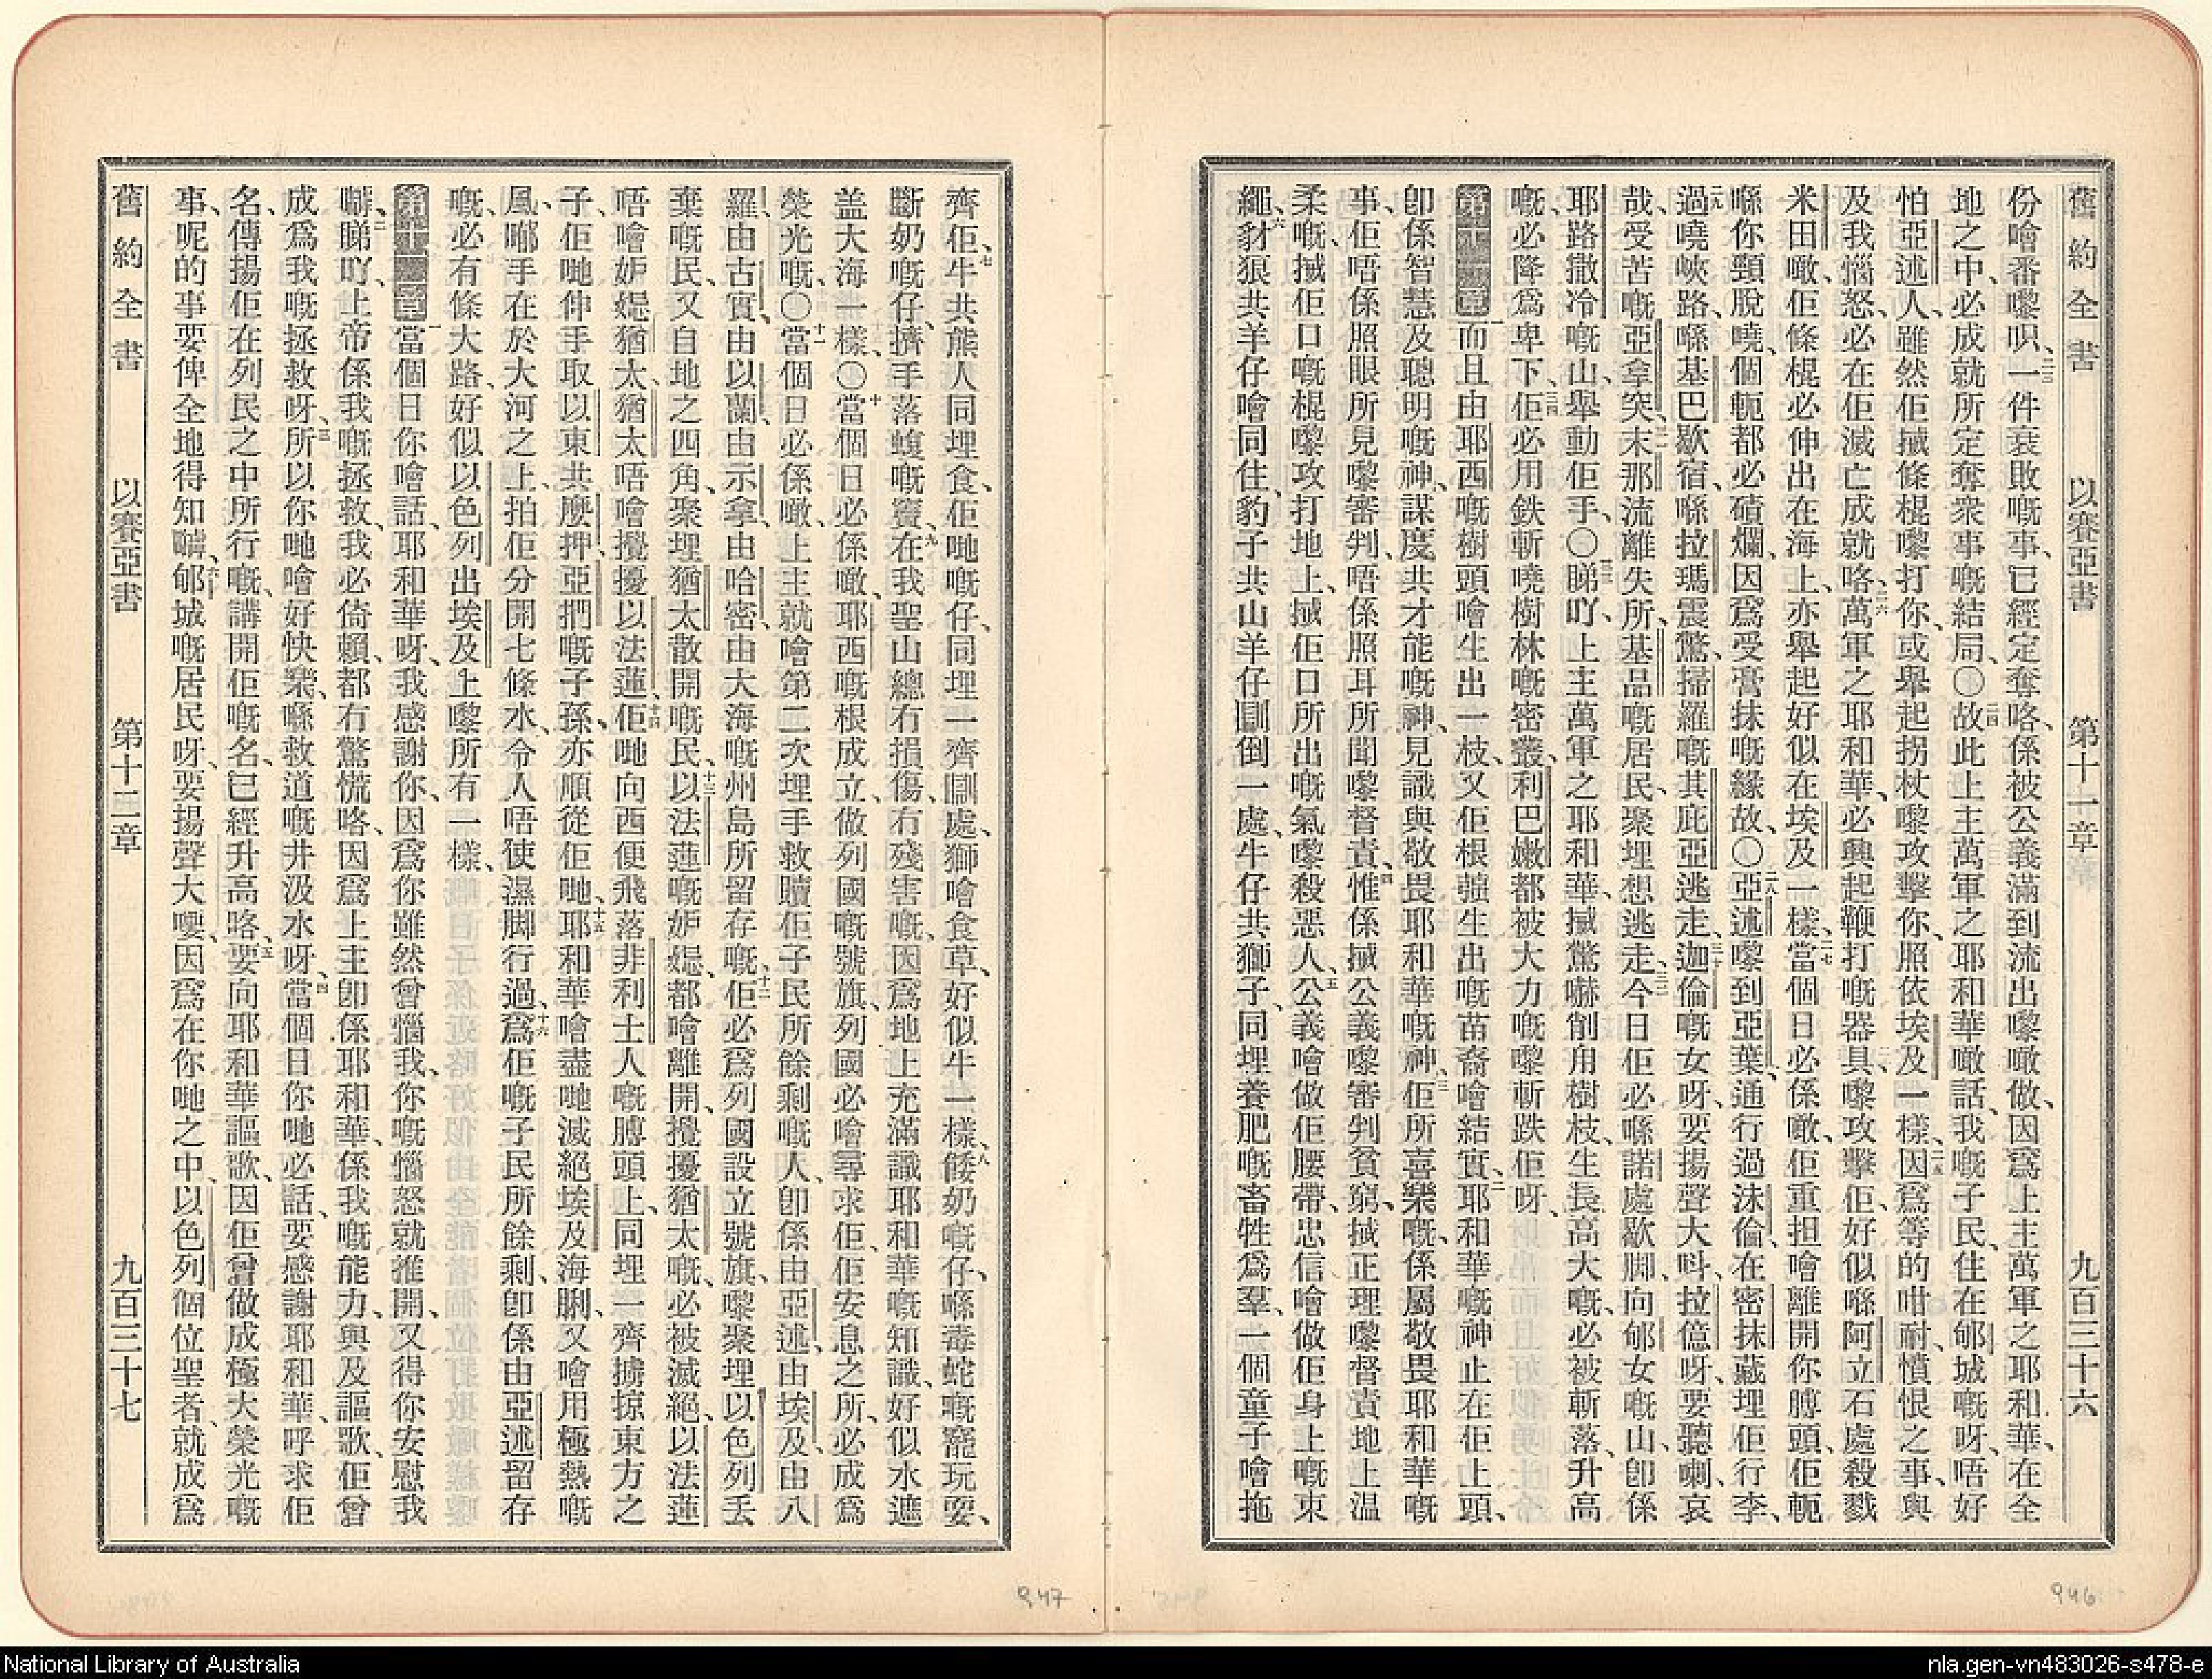 舊約全書　以賽亞書　第十一章　九百三十六
份噲番嚟呮、二三一件衰敗嘅事、已經定奪咯、係被公義滿到流出嚟噉做、因爲上主萬軍之耶和華、在全
地之中、必成就所定奪衆事嘅結局、〇二四故此上主萬軍之耶和華噉話、我嘅子民住在郇城嘅呀、唔好
怕亞述人、雖然佢搣條棍嚟打你、或舉起拐杖嚟攻擊你、照依埃及一樣、二五因爲等的咁耐、憤恨之事、與
及我惱怒、必在佢滅亡成就咯、二六萬軍之耶和華、必興起鞭打嘅器具、嚟攻擊佢、好似喺阿立石處殺戮
米田噉、佢條棍必伸出在海上、亦舉起好似在埃及一樣、二七當個日必係噉、佢重担噲離開你膊頭、佢軛
喺你頸脫嘵、個軛都必磧爛、因爲受膏抹嘅緣故、〇二八亞述嚟到亞葉、通行過沬倫、在密抹藏埋佢行李、
二九過嘵峽路、喺基巴歇宿、喺拉瑪震驚、掃羅嘅其庇亞逃走、三十迦倫嘅女呀、要揚聲大呌、拉億呀、要聽喇、哀
哉、受苦嘅亞拿突、三一末那流離失所、基品嘅居民、聚埋想逃走、三二今日佢必喺諾處歇脚、向郇女嘅山、卽係
耶路撒冷嘅山、舉動佢手、〇三三睇吖、上主萬軍之耶和華、搣驚嚇削用樹枝、生長高大嘅、必被斬落、升高
嘅、必降爲卑下、三四佢必用鉄斬嘵樹林嘅密叢、利巴嫩都被大力嘅嚟斬跌佢呀、
第十一章　一而且由耶西嘅樹頭噲生出一枝、又佢根張生出嘅苗裔噲結實、二耶和華嘅神止在佢上頭、
卽係智慧及聰明嘅神、謀度共才能嘅神、見識與敬畏耶和華嘅神、三佢所喜樂嘅、係屬敬畏耶和華嘅
事、佢唔係照眼所見嚟審判、唔係照耳所聞嚟督責、四惟係搣公義嚟審判貧窮、搣正理嚟督責地上温
柔嘅、搣佢口嘅棍嚟攻打地上、搣佢口所出嘅氣嚟殺惡人、五公義噲做佢腰帶、忠信噲做佢身上嘅束
繩、六豺狼共羊仔噲同住、豹子共山羊仔瞓倒一處、牛仔共獅子、同埋養肥嘅畜牲爲羣、一個童子噲拖
齊佢、七牛共熊人同埋食、佢哋嘅仔、同埋一齊瞓處、獅噲食草、好似牛一樣、八餧奶嘅仔、喺毒蛇嘅窿玩耍、
斷奶嘅仔、擠手落蝮嘅竇、九在我聖山總冇損傷、冇殘害嘅、因爲地上充滿識耶和華嘅知識、好似水遮
盖大海一樣、〇十當個日必係噉、耶西嘅根成立、做列國嘅號旗、列國必噲尋求佢、佢安息之所、必成爲
榮光嘅、〇十一當個日必係噉、上主就噲第二次埋手救贖佢子民所餘剩嘅人、卽係由亞述、由埃及、由八
羅、由古實、由以蘭、由示拿、由哈密、由大海嘅州島所留存嘅、十二佢必爲列國設立號旗、嚟聚埋以色列丢
棄嘅民、又自地之四角、聚埋猶太散開嘅民、十三以法蓮嘅妒嬎、都噲離開、攪擾猶太嘅、必被滅絕、以法蓮
唔噲妒嬎猶太、猶太唔噲攪擾以法蓮、十四佢哋向西便飛落非利士人嘅膊頭上、同埋一齊擄掠東方之
子、佢哋伸手取以東共摩押、亞捫嘅子孫、亦順從佢哋、十五耶和華噲盡哋滅絕埃及海脷、又噲用極熱嘅
風、嘟手在於大河之上、拍佢分開七條水、令人唔使濕脚行過、十六爲佢嘅子民所餘剩、卽係由亞述留存
嘅、必有條大路、好似以色列出埃及上嚟所有一樣、
第十二章　一當個日你噲話、耶和華呀、我感謝你、因爲你雖然曾惱我、你嘅惱怒就推開、又得你安慰我
嚋、二睇吖、上帝係我嘅拯救、我必倚賴、都冇驚慌咯、因爲上主卽係耶和華、係我嘅能力、與及謳歌、佢曾
成爲我嘅拯救呀、三所以你哋噲好快樂、喺救道嘅井汲水呀、四當個日你哋必話、要感謝耶和華、呼求佢
名、傳揚佢在列民之中所行嘅、講開佢嘅名、已經升高咯、五要向耶和華謳歌、因佢曾做成極大榮光嘅
事、呢的事要俾全地得知嚋、六郇城嘅居民呀、要揚聲大嚶、因爲在你哋之中、以色列個位聖者、就成爲
舊約全書　以賽亞書　第十二章　九百三十七
947
946
National Library of Australia
nla.gen-vn483026-s478-e